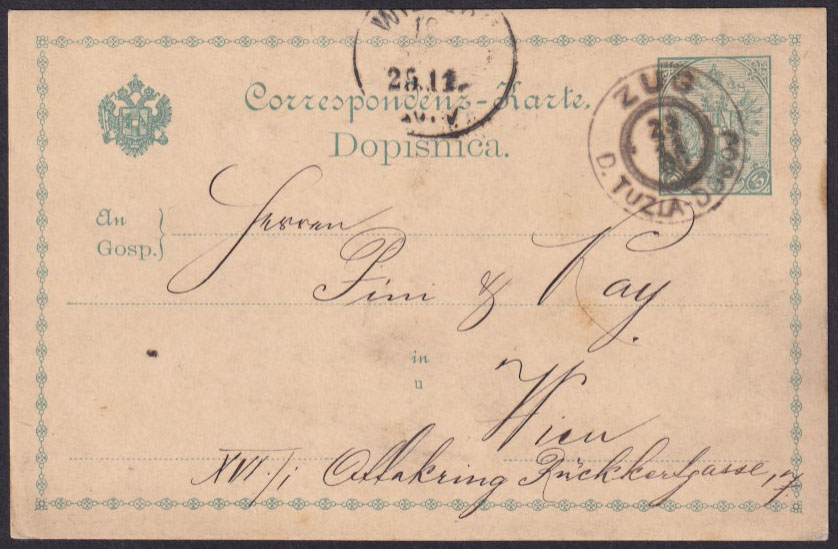 25.11.
Correspondenz-Karte.
Dopisnica.
ZUG
D. TUZLA-DOBOJ
5
An
Gosp.
Herren
Fini & Kay
in
u
Wien
XVI/1 Ottakring Rückertgasse, 17.